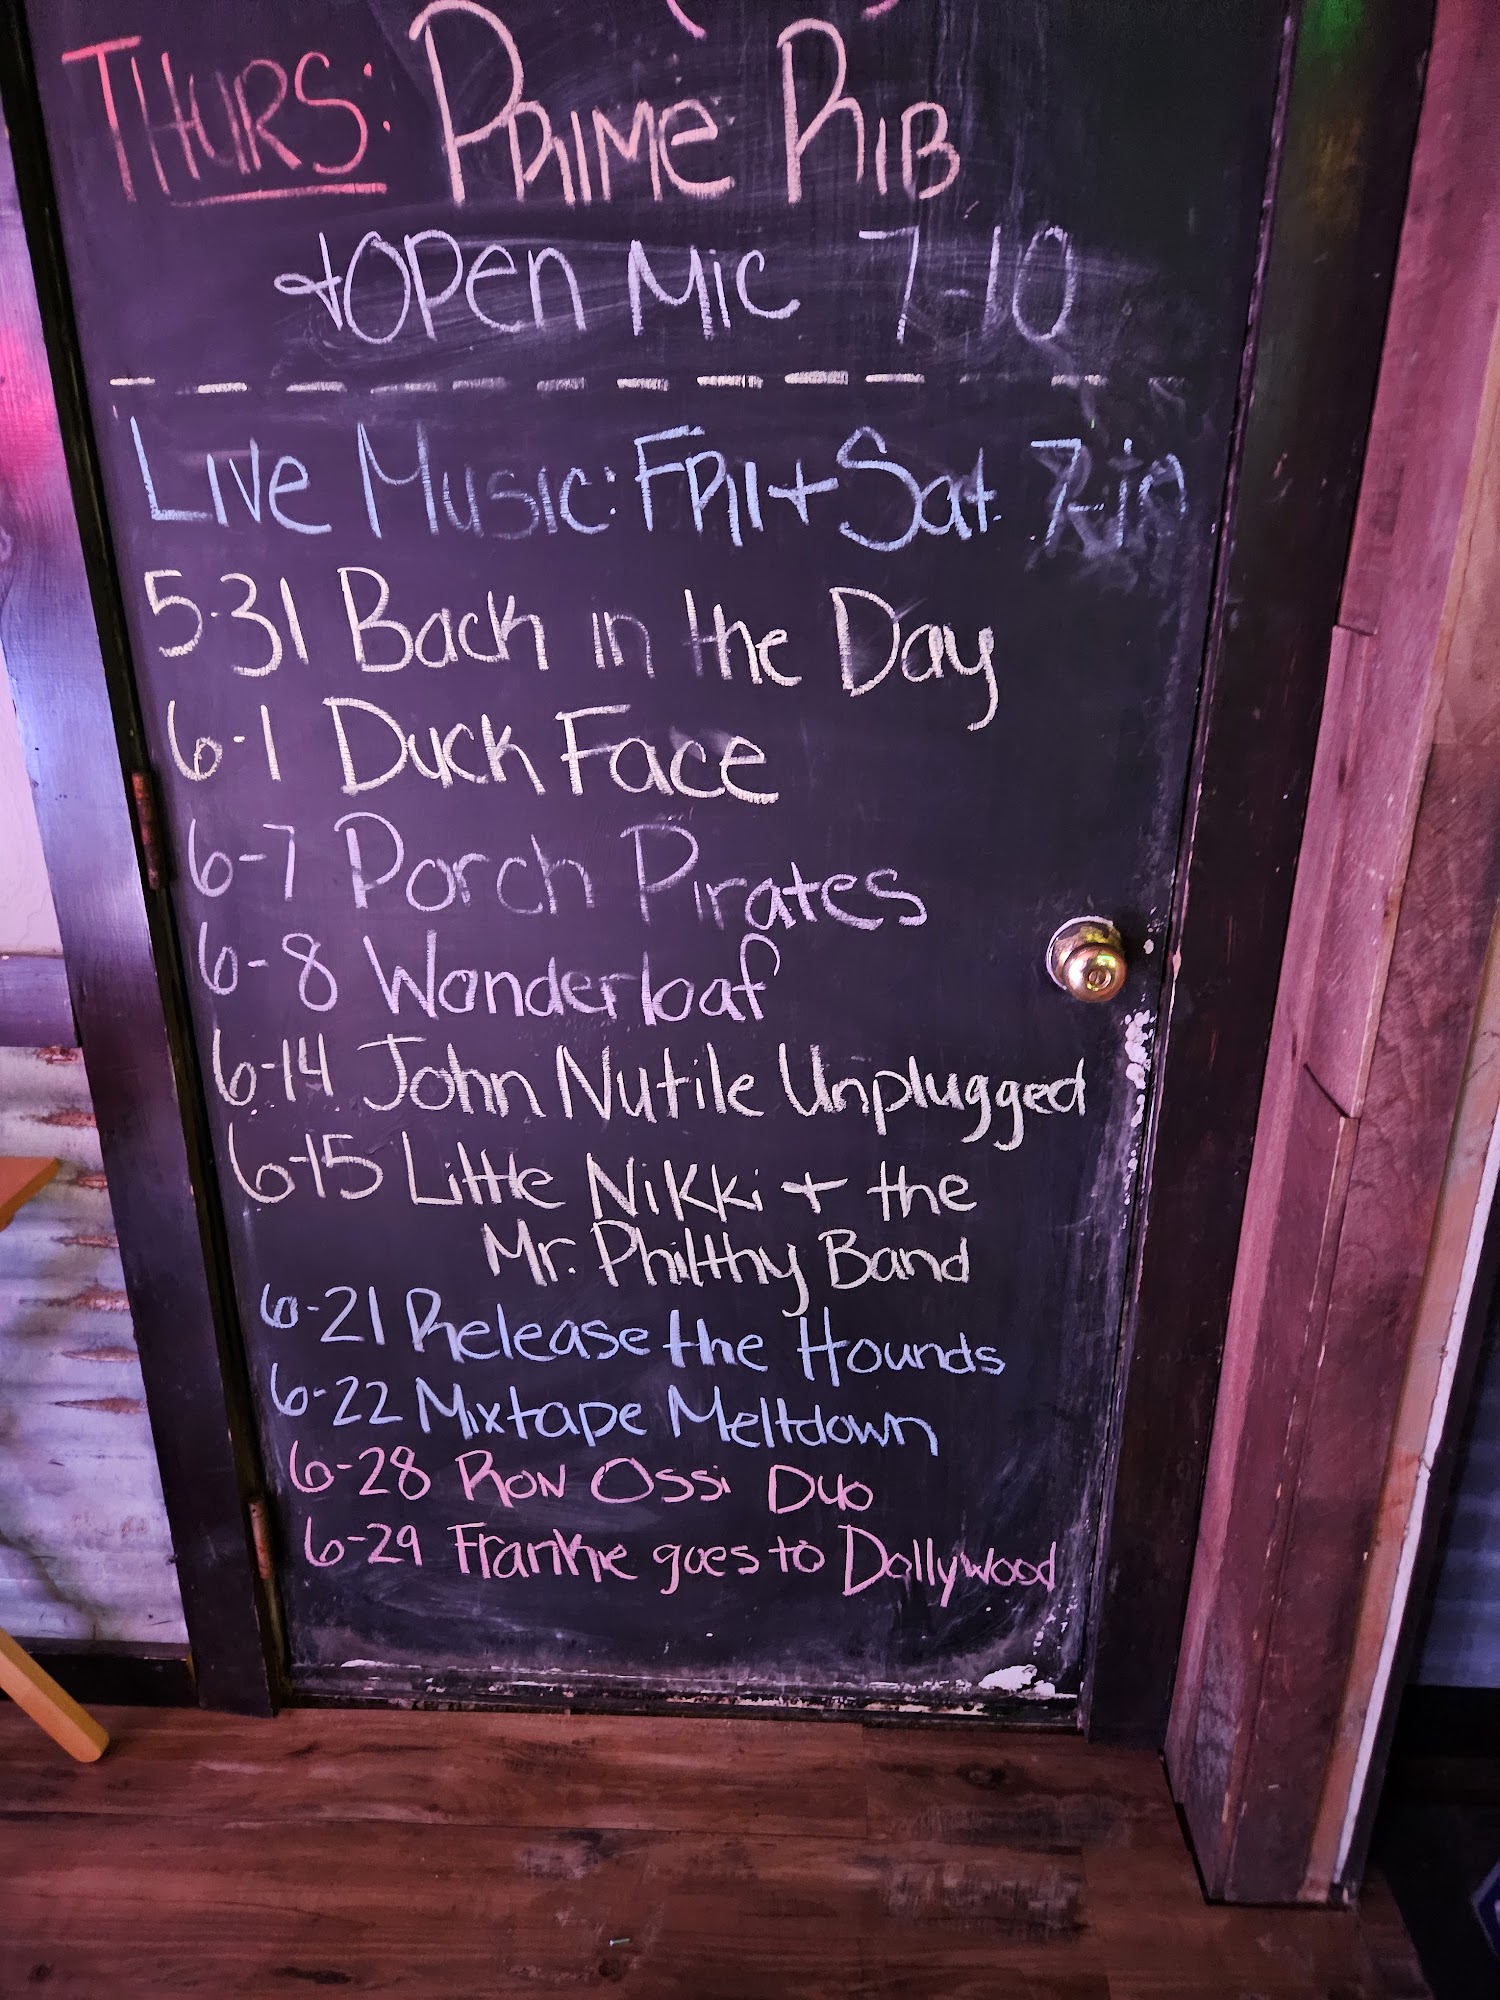 THURS: PRIME RIB
+ OPEN MIC 7-10
LIVE MUSIC: FRI + SAT. 7-10
5-31 Back in the Day
6-1 Duck Face
6-7 Porch Pirates
6-8 Wonderloaf
6-14 John Nutile Unplugged
6-15 Little Nikki + the
Mr. Philthy Band
6-21 Release the Hounds
6-22 Mixtape Meltdown
6-28 Ron Ossi Duo
6-29 Frankie goes to Dollywood